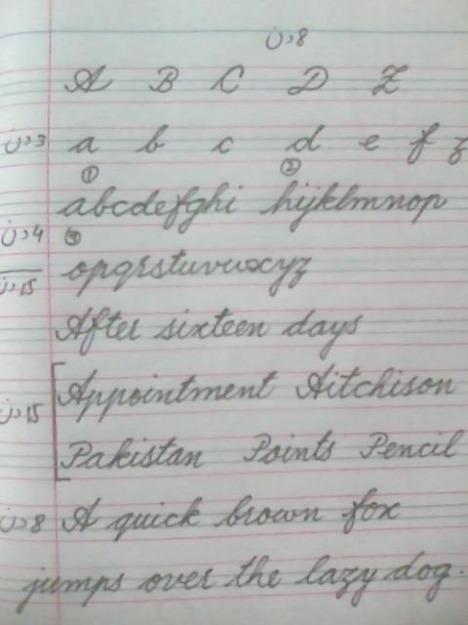 8 دن
A B C D Z
3 دن a b c d e f z
① ②
abcdefghi hijklmnop
4 دن ③
15 دن opqrstuvwxyz
After sixteen days
Appointment Aitchison
15 دن
Pakistan Points Pencil
8 دن A quick brown fox
jumps over the lazy dog.